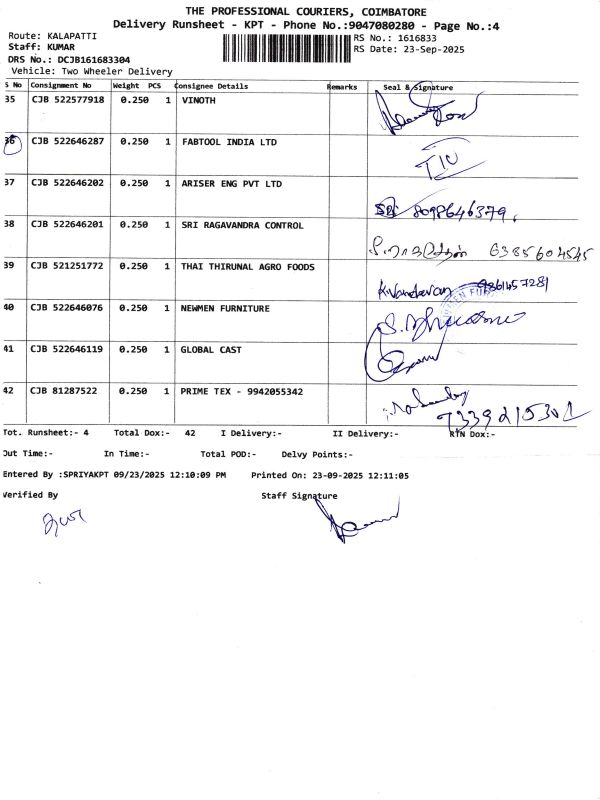 THE PROFESSIONAL COURIERS, COIMBATORE
Delivery Runsheet - KPT - Phone No.:9047080280 - Page No.:4
Route: KALAPATTI
RS No.: 1616833
Staff: KUMAR
RS Date: 23-Sep-2025
DRS No.: DCJB161683304
Vehicle: Two Wheeler Delivery
S No Consignment No Weight PCS Consignee Details Remarks Seal & Signature
35 CJB 522577918 0.250 1 VINOTH
36 CJB 522646287 0.250 1 FABTOOL INDIA LTD
37 CJB 522646202 0.250 1 ARISER ENG PVT LTD 8098646379
38 CJB 522646201 0.250 1 SRI RAGAVANDRA CONTROL 6385604545
39 CJB 521251772 0.250 1 THAI THIRUNAL AGRO FOODS 9361457281
40 CJB 522646076 0.250 1 NEWMEN FURNITURE
41 CJB 522646119 0.250 1 GLOBAL CAST
42 CJB 81287522 0.250 1 PRIME TEX - 9942055342
Tot. Runsheet:- 4 Total Dox:- 42 I Delivery:- II Delivery:- RTN Dox:-
Out Time:- In Time:- Total POD:- Delvy Points:-
Entered By :SPRIYAKPT 09/23/2025 12:10:09 PM Printed On: 23-09-2025 12:11:05
Verified By Staff Signature